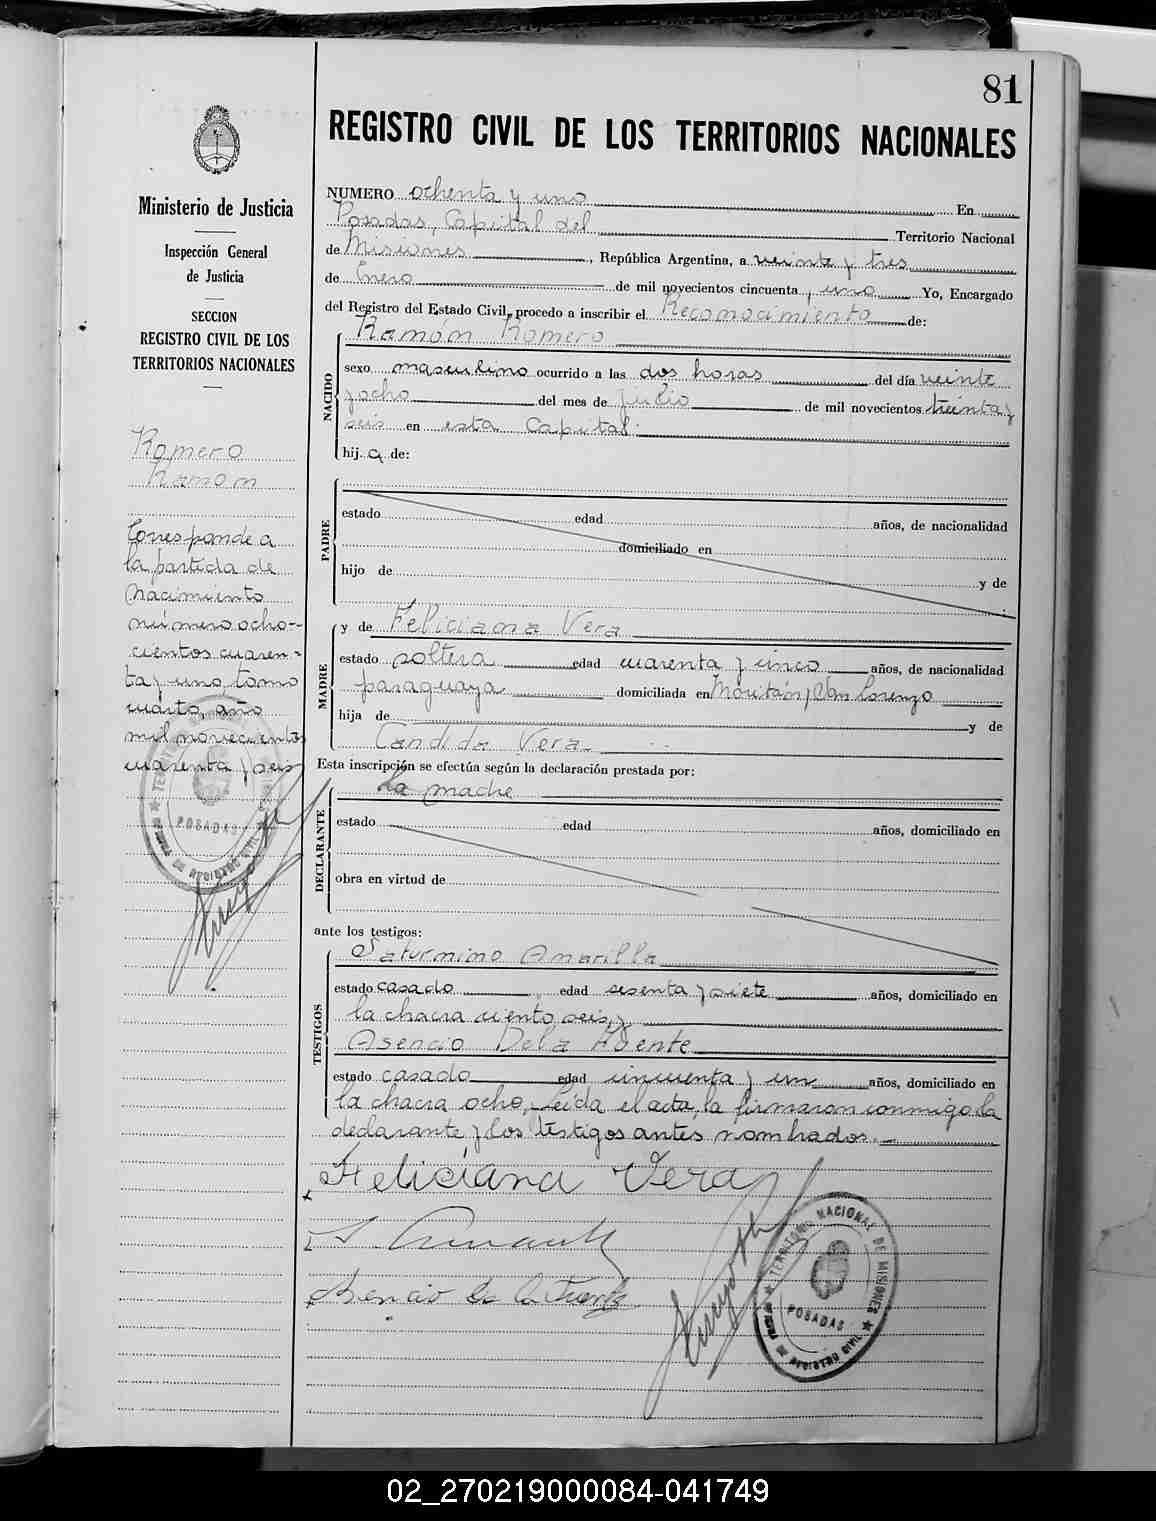 81
REGISTRO CIVIL DE LOS TERRITORIOS NACIONALES
Ministerio de Justicia
Inspección General
de Justicia
SECCION
REGISTRO CIVIL DE LOS
TERRITORIOS NACIONALES
Romero
Ramón
Corresponde a
la partida de
nacimiento
número ocho-
cientos cuaren-
ta y uno, tomo
cuarto, año
mil novecientos
cuarenta y seis
POSADAS
NUMERO ochenta y uno En
Posadas, Capital del Territorio Nacional
de Misiones, República Argentina, a veinte y tres
de Enero de mil novecientos cincuenta y uno Yo, Encargado
del Registro del Estado Civil, procedo a inscribir el Reconocimiento de:
NACIDO
Ramón Romero
sexo masculino ocurrido a las dos horas del día veinte
y ocho del mes de julio de mil novecientos treinta y
seis en esta Capital
hij a de:
PADRE
estado edad años, de nacionalidad
domiciliado en
hijo de y de
MADRE
y de Feliciana Vera
estado soltera edad cuarenta y cinco años, de nacionalidad
paraguaya domiciliada en San Lorenzo
hija de y de
Candida Vera
Esta inscripción se efectúa según la declaración prestada por:
DECLARANTE
La madre
estado edad años, domiciliado en
obra en virtud de
ante los testigos:
TESTIGOS
Saturnino Amarilla
estado casado edad sesenta y siete años, domiciliado en
la chacra ciento seis, y
Asencio De la Fuente
estado casado edad cincuenta y un años, domiciliado en
la chacra ocho, Leída el acta, la firmaron conmigo la
declarante y los testigos antes nombrados.
Feliciana Vera
Asencio de la Fuente
TERRITORIO NACIONAL DE MISIONES
POSADAS
DE REGISTRO CIVIL
02_270219000084-041749